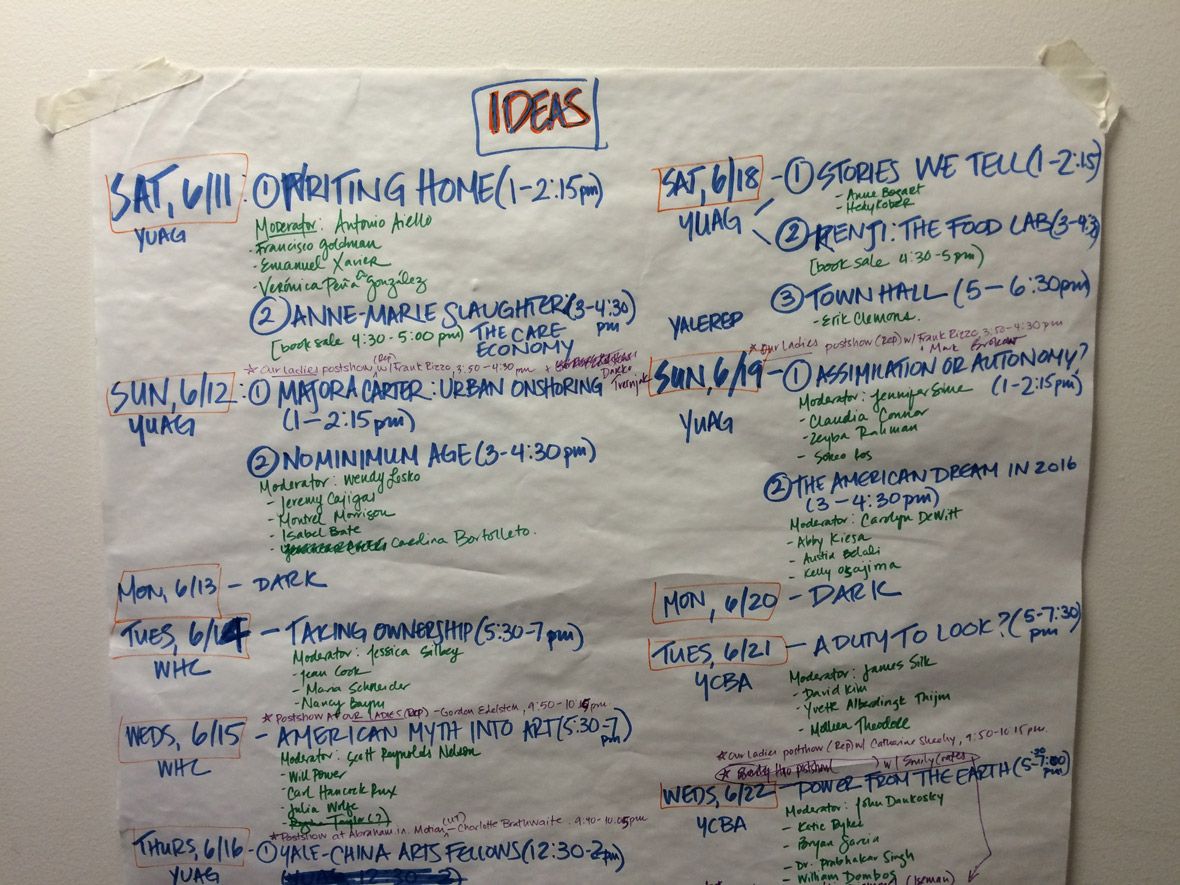 IDEAS
SAT, 6/11: ① WRITING HOME (1-2:15pm)
YUAG
Moderator: Antonio Aiello
- Francisco Goldman
- Emanuel Xavier
- Verónica Peña González
② ANNE-MARIE SLAUGHTER: (3-4:30 pm)
[book sale 4:30-5:00 pm) THE CARE
ECONOMY
* Our Ladies postshow (REP) w/ Frank Rizzo, 3:50-4:30 pm +
SUN, 6/12: ① MAJORA CARTER: URBAN ONSHORING
YUAG
(1-2:15pm)
② NO MINIMUM AGE (3-4:30pm)
Moderator: Wendy Lesko
- Jeremy Cajigas
- Montrel Morrison
- Isabel Bate
- Carolina Bortolleto.
MON, 6/13 - DARK
TUES, 6/14 - TAKING OWNERSHIP (5:30-7pm)
WHC
Moderator: Jessica Silbey
- Jean Cook
- Maria Schneider
- Nancy Baym
* Postshow at OUR LADIES (REP) - Gordon Edelstein, 9:50-10:15pm
WEDS, 6/15 - AMERICAN MYTH INTO ART (5:30-7 pm)
WHC
Moderator: Scott Reynolds Nelson
- Will Power
- Carl Hancock Rux
- Julia Wolfe
* Postshow at Abraham.in.Motion (UT) - Charlotte Brathwaite. 9:40-10:05pm
THURS, 6/16 - ① YALE-CHINA ARTS FELLOWS (12:30-2pm)
YUAG
SAT, 6/18 - ① STORIES WE TELL (1-2:15)
YUAG
- Anne Bogart
- Hedy Kober
② KENJI: THE FOOD LAB (3-4:3
[book sale 4:30-5pm)
③ TOWN HALL (5-6:30pm)
YALEREP
- Erik Clemons.
* Our Ladies postshow (REP) w/ Frank Rizzo, 3:50-4:30 pm
+ Mark Brokaw
SUN, 6/19 - ① ASSIMILATION OR AUTONOMY?
YUAG
(1-2:15pm)
Moderator: Jennifer
- Claudia Connor
- Zeyba Rahman
- Sokeo Ros
② THE AMERICAN DREAM IN 2016
(3-4:30pm)
Moderator: Carolyn DeWitt
- Abby Kiesa
- Austin Belali
- Kelly Osajima
MON, 6/20 - DARK
TUES, 6/21 - A DUTY TO LOOK? (5-7:30 pm)
YCBA
Moderator: James Silk
- David Kim
- Yvette Alberdingk Thijm
- Theodore
* Our Ladies postshow (Rep) w/ Catherine Sheehy, 9:50-10:15pm.
w/ Emily Coates
WEDS, 6/22 - POWER FROM THE EARTH (5-7:30 pm)
YCBA
Moderator: John Dankosky
- Katie Dykes
- Bryan Garcia
- Dr. Prabhakar Singh
- William Dombos
(Iseman)